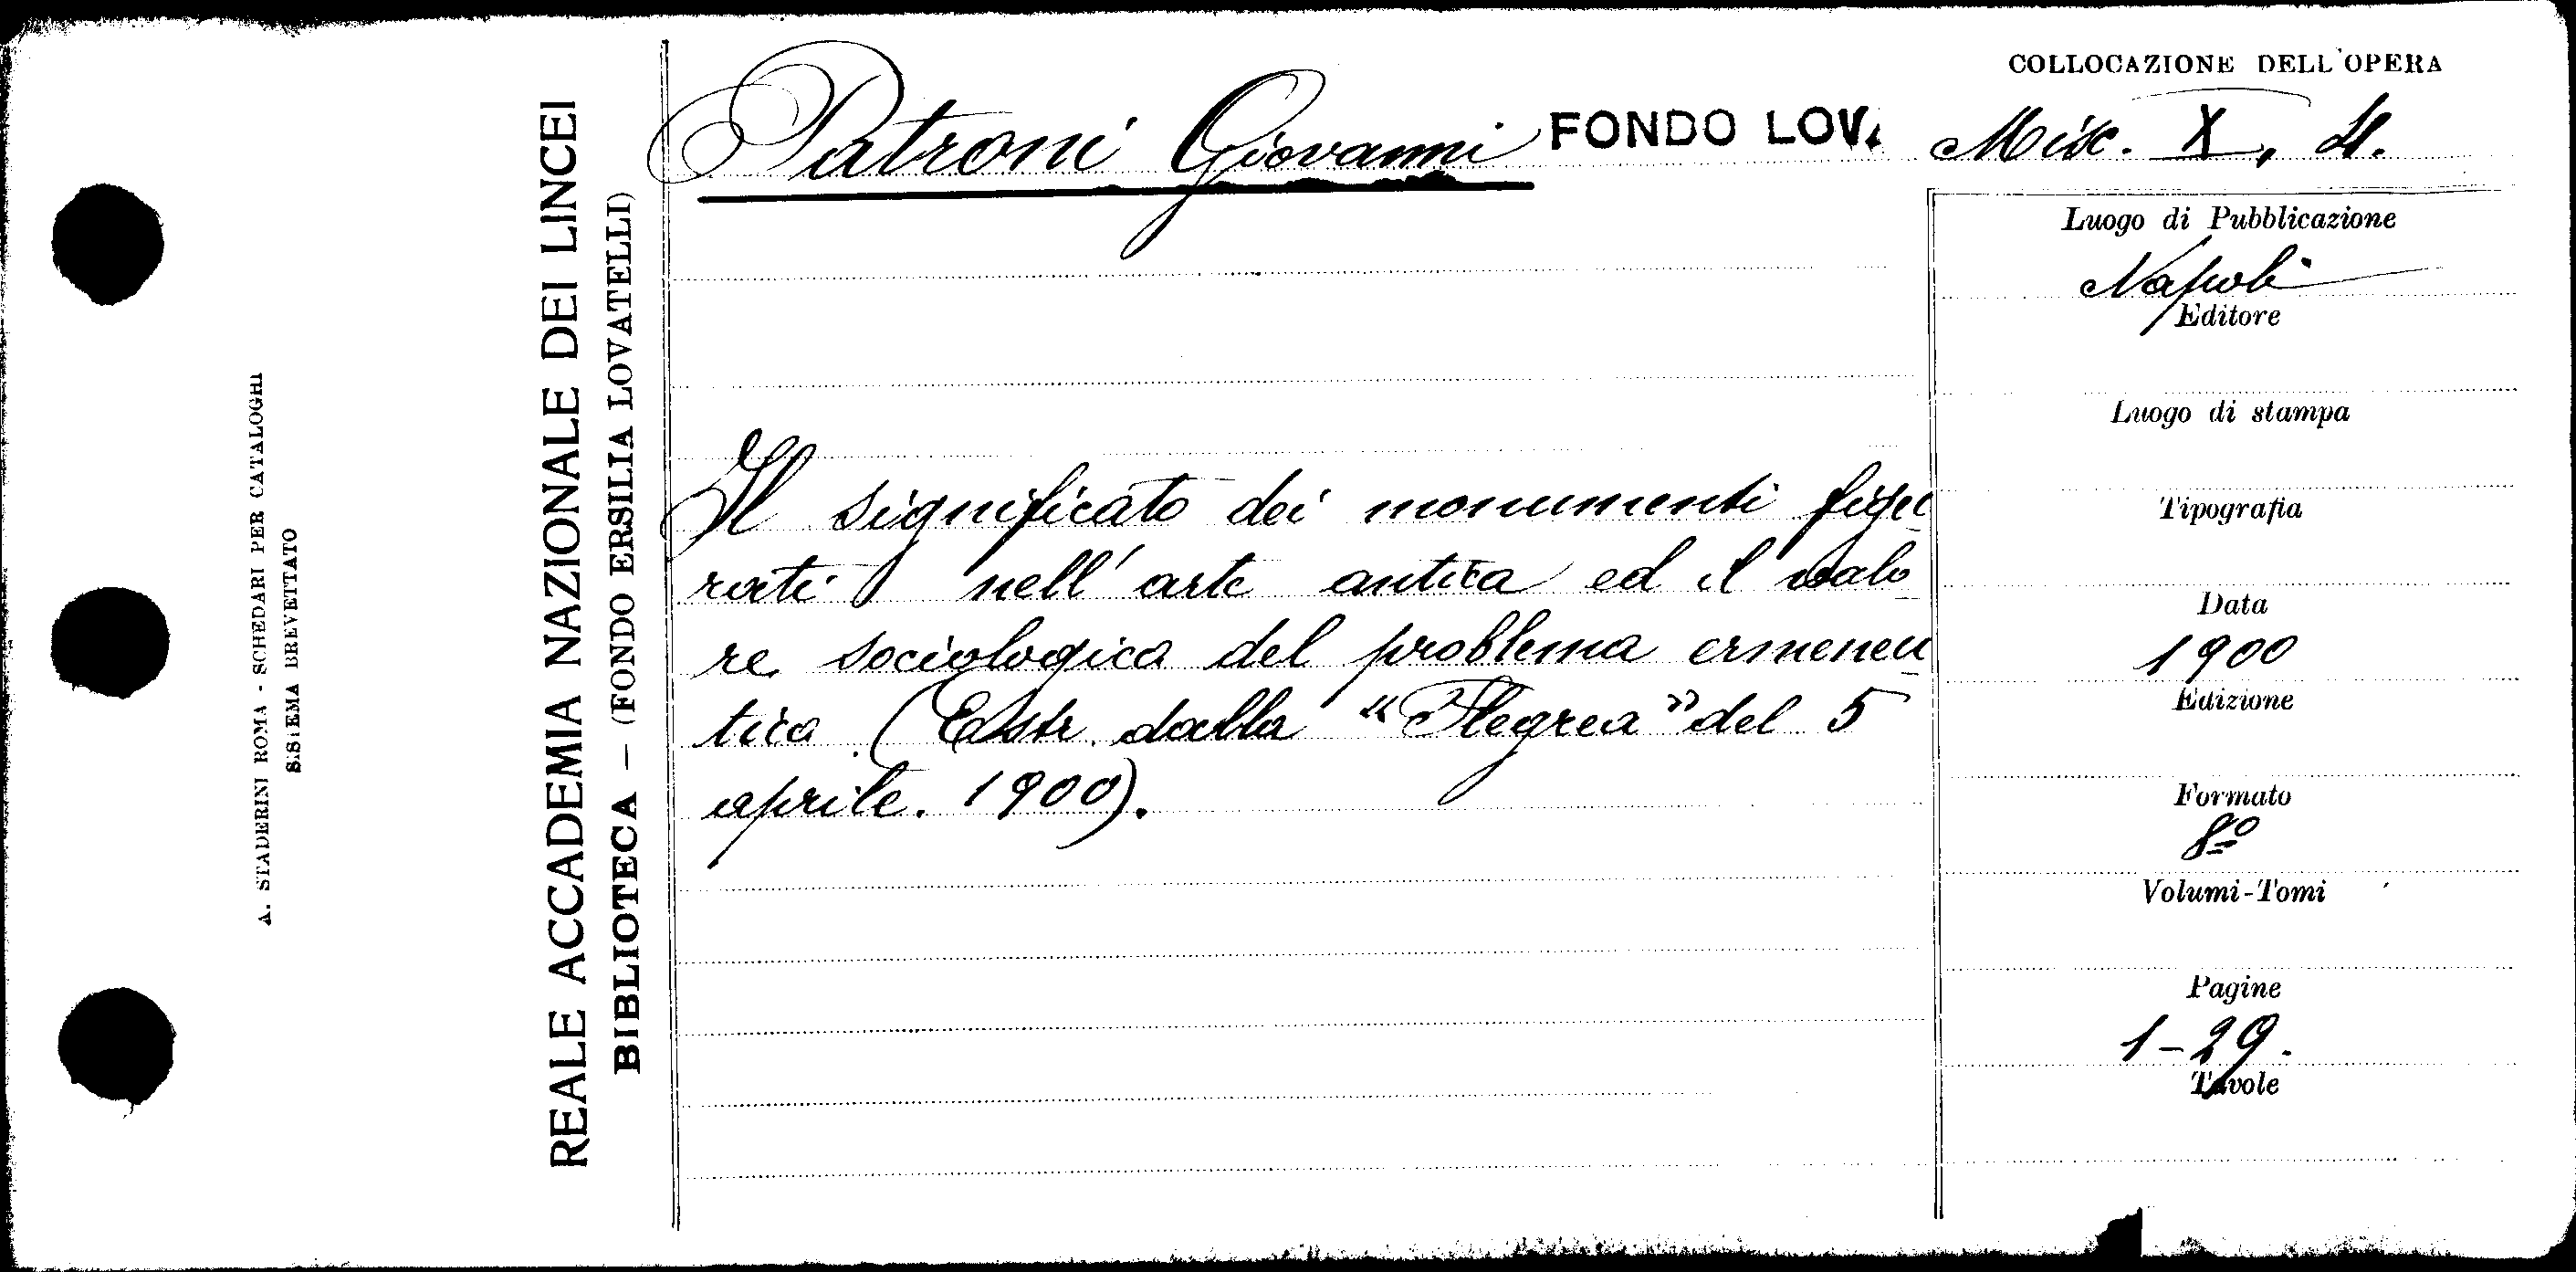 COLLOCAZIONE DELL'OPERA
Patroni Giovanni FONDO LOV. Misc. X,
Luogo di Pubblicazione
Napoli
Editore
Luogo di stampa
Tipografia
Data
1900
Edizione
Formato
8º
Volumi-Tomi
Pagine
1-29.
Tavole
Il significato dei monumenti figu
rati nell'arte antica ed il valo
re sociologica del problema ermeneu
tica (Estr. dalla "Flegrea" del 5
aprile. 1900).
REALE ACCADEMIA NAZIONALE DEI LINCEI
BIBLIOTECA — (FONDO ERSILIA LOVATELLI)
A. STADERINI ROMA - SCHEDARI PER CATALOGHI
SISTEMA BREVETTATO